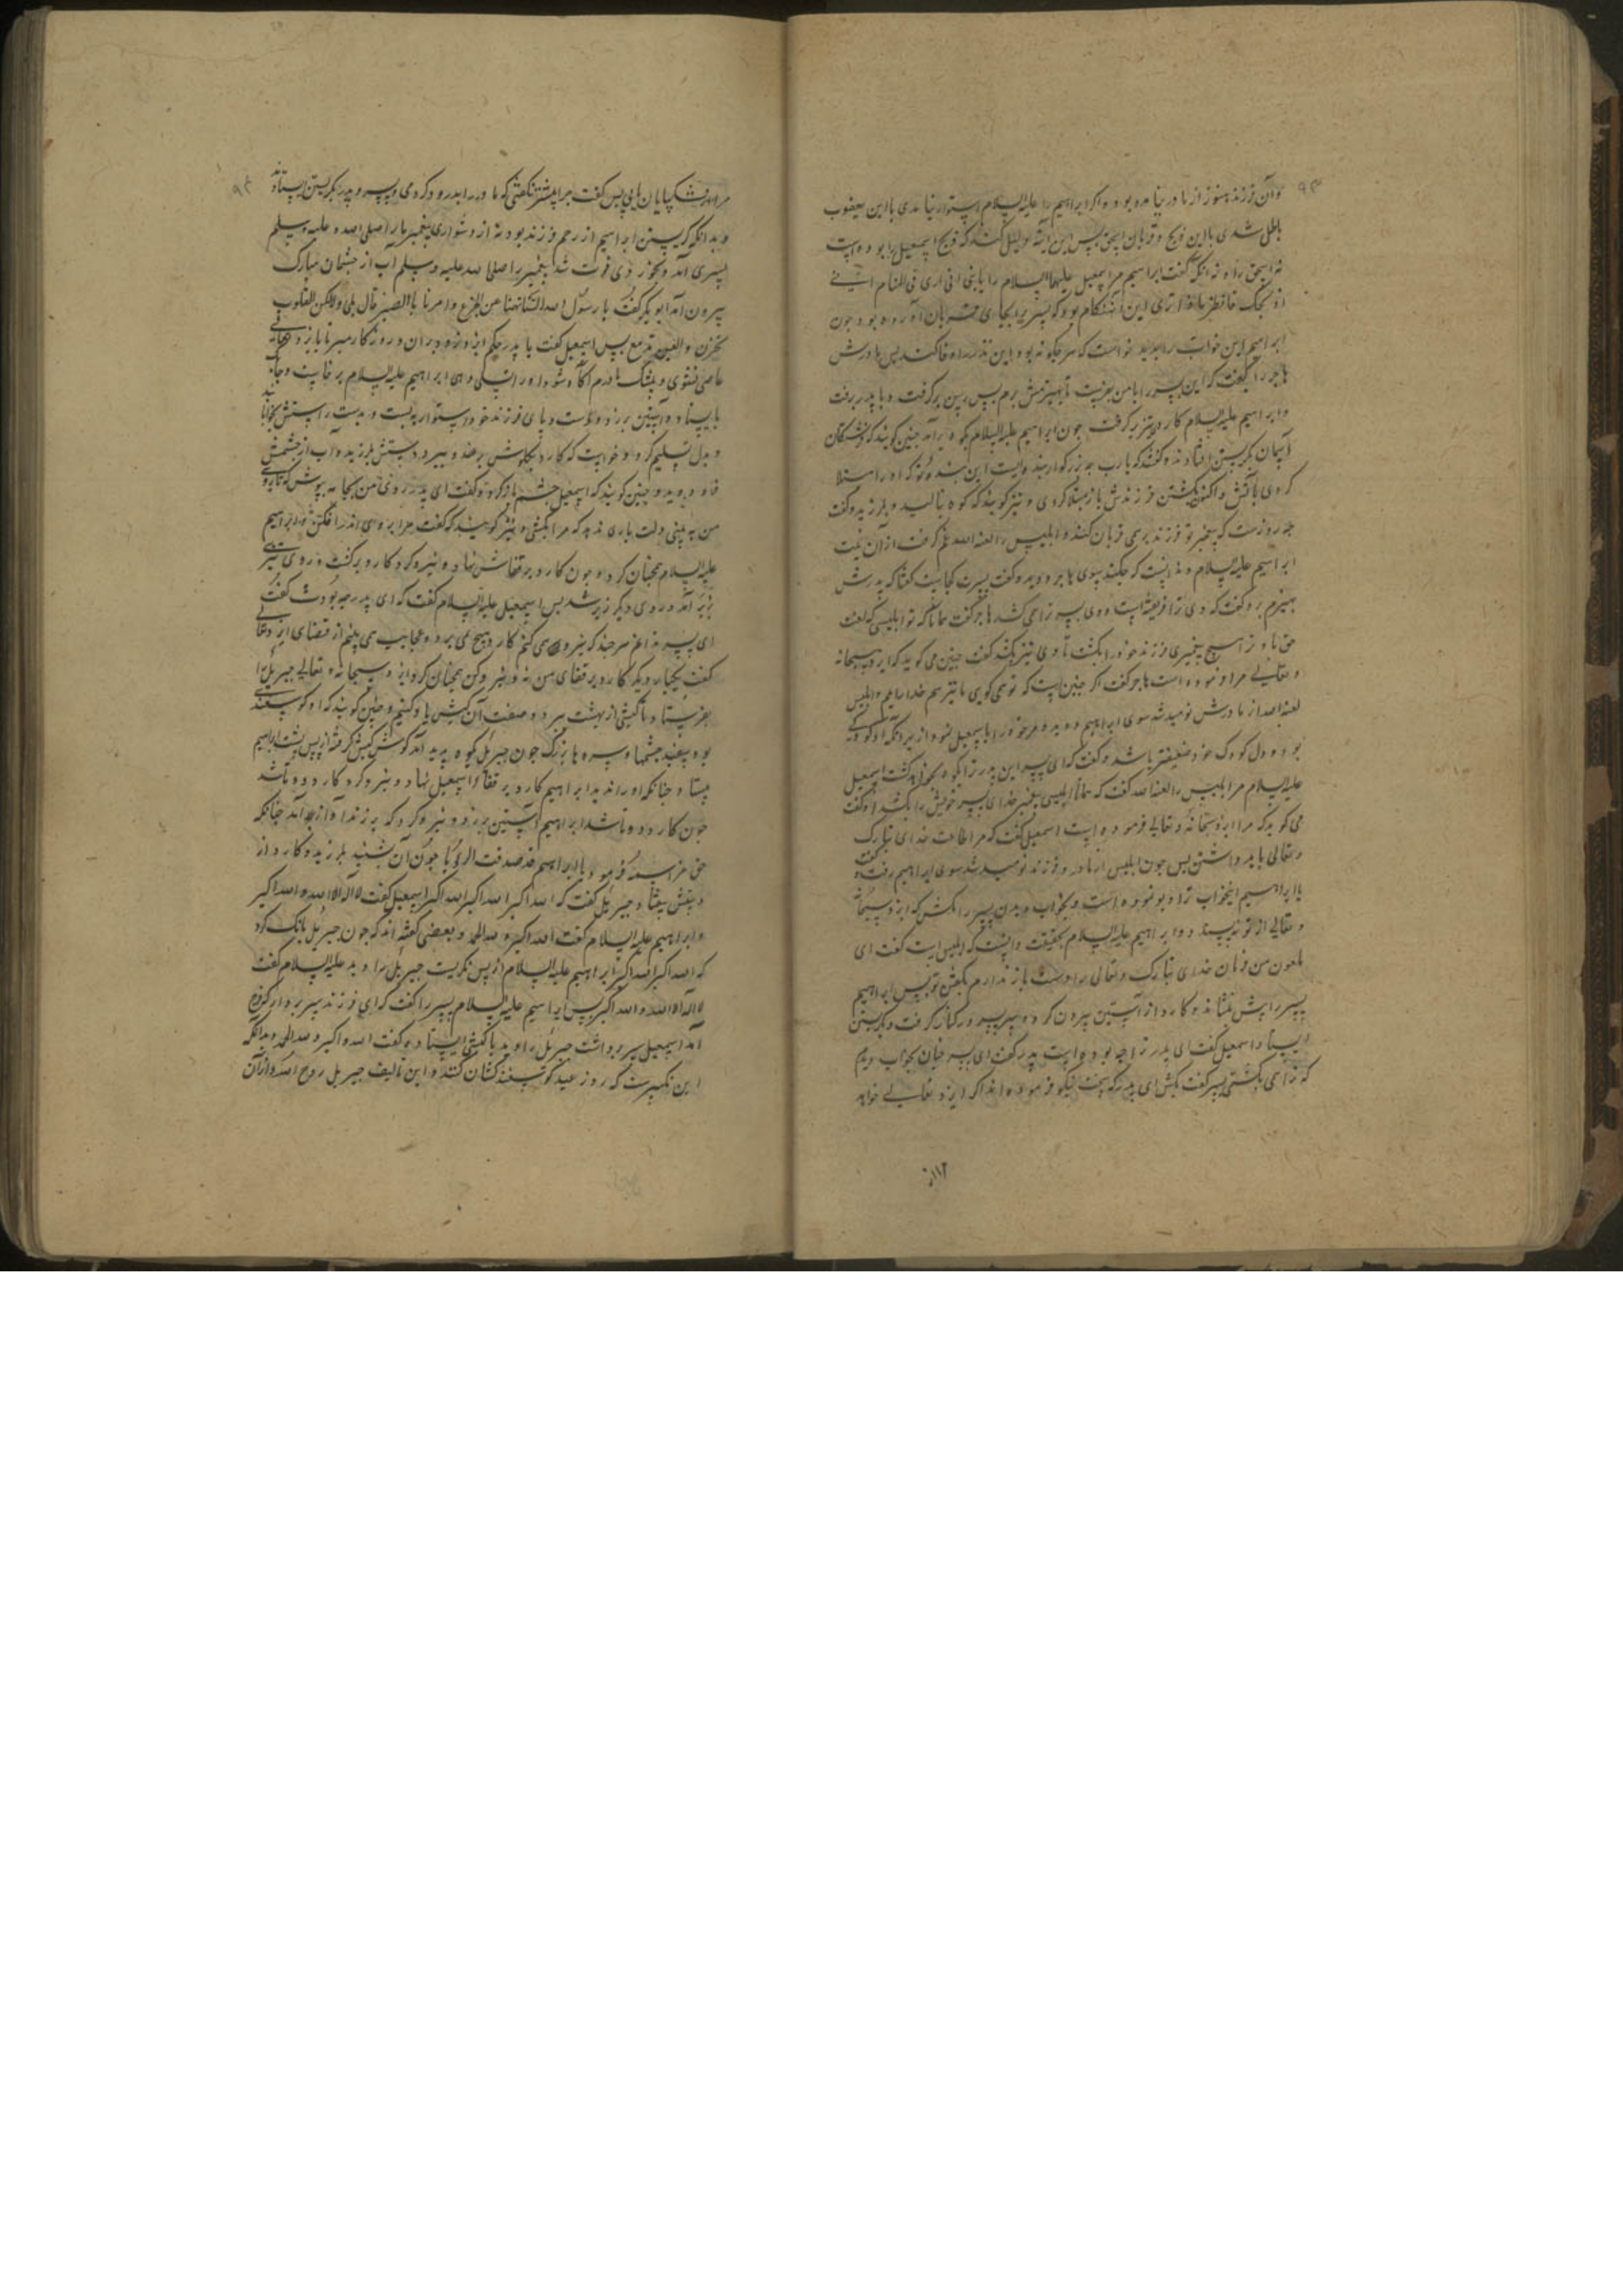 ۹۳
وآن فرزند هنوز از مادر نیامده بود و اکر ابراهیم را علیه السلام استوار نیامدی با این یعقوب
باطل شدی با این ذبح و قربان اسحق پس این آیة دلیل کند که ذبح اسمعیل را بوده است
نه اسحق را و نه انکه گفت ابراهیم مر اسمعیل علیهما السلام را یا بنی انی اری فی المنام انی
اذبحک فانظر ماذا تری این آن هنکام بود که پسر را بجای قربان آورده بود چون
ابراهیم این خواب را بدید خواست که هر چکونه بود این نذر را وفا کند پس مادرش
هاجر را گفت که این پسر را با من بفرست تا بهیزمش برم پس رسن برکرفت و با پدر برفت
و ابراهیم علیه السلام کارد تیز برکرفت چون ابراهیم علیه السلام بکوه برآمد چنین کویند که فرشتکان
آسمان بکریستن افتادند و گفتند که یارب چه بزرکوار بنده ایست این بنده تو که او را مبتلا
کردی باتش و اکنون بکشتن فرزندش باز مبتلا کردی و نیز کویند که کوه بنالید و بلرزید و گفت
چه روزست که پیغمبر تو فرزند برمی قربان کند و ابلیس را لعنه الله غم کرفت از آن نیت
ابراهیم علیه السلام و ندانست که چکند بسوی هاجر دوید و گفت پسرت کجاست گفتا که پدرش
بهیزم برد گفت که وی ترا فریفته است و وی پسر ترا می کشد هاجر گفت همانا که تو ابلیسی که لعنت
حق تا و ز هیچ پیغمبری فرزند خود را بکشت تا وی نیز بکند گفت چنین می کوید که ایزد سبحانه
و تعالی مرا فرموده است هاجر گفت اکر چنین است که تو می کویی ما نیز هم خدا را ایم و ابلیس
لعنه الله از مادرش نومید شد سوی ابراهیم دوید و مر خود را با سمعیل نمود از بهر آنکه او کودکی
بود و دل کودک خود ضعیفتر باشد و گفت که ای پسر این پدر ترا بکوه بخواهد کشت اسمعیل
علیه السلام مر ابلیس را لعنه الله گفت که همانا ابلیسی پیغمبر خدای پسر خویش را بکشد او گفت
می کوید که مرا ایزد سبحانه و تعالی فرموده است اسمعیل گفت که مر اطاعت خدای تبارک
و تعالی باید داشتن پس چون ابلیس از مادر و فرزند نومید شد سوی ابراهیم رفت و گفت
یا ابراهیم این خواب ترا دیو نموده است و بخواب دیدن پسر را مکش که ایزد سبحانه
و تعالی از تو نپسندد و ابراهیم علیه السلام بحقیقت دانست که ابلیس است گفت ای
ملعون من فرمان خدای تبارک و تعالی را دست باز ندارم بکفتن تو پس ابراهیم
پسر را پیش نشاند و کارد از آستین بیرون کرد و سر پسر در کنار کرفت و بکریستن
ایستاد اسمعیل گفت ای پدر ترا چه بوده است پدر گفت ای پسر چنان بخواب دیدم
که ترا می بکشتمی پسر گفت بکش ای پدر که سخت نیکو فرموده اند اکر ایزد تعالی خواهد
۱۱۲
۹۴
مرا از شکیبایان یابی پس گفت چرا پیشتر نکفتی که مادر را بدرود کردمی و پسر و پدر بکریستن ایستادند
و بدانکه کریستن ابراهیم از رحم فرزند بود نه از دشواری پیغمبر ما را صلی الله علیه وسلم
پسری آمد و بخورد وی فوت شد پیغمبر را صلی الله علیه وسلم آب از چشمان مبارک
بیرون آمد ابو بکر گفت یا رسول الله انتنا نهینا عن الجزع و امرنا با الصبر قال بلی ولکن القلوب
تحزن والعین تدمع پس اسمعیل گفت یا پدر بحکم ایزد نزد بران و روزکار مبر تا بایزد سبحانه
عاصی نشوی و پشتک ما درم آکاه شود او را تسلی دهی ابراهیم علیه السلام برخاست و چابک
بایستاد و آستین بر زد و دست و پای فرزند خود استوار ببست و بدست راستش بخوابانید
و بدل تسلیم کرد و خواست که کارد بکلوش برنهد و ببرد دستش بلرزید و آب از چشمش
فرو دوید و چنین کویند که اسمعیل چشم باز کرد و گفت ای پدر روی من بجامه بپوش که تا روی
من نه بینی دلت یاری ندهد که مرا بکشی و نیز کویند که گفت مرا بروی اندر افکن و ابراهیم
علیه السلام همچنان کرد و چون کارد بر قفاش نهاد و نیرو کرد کارد برکشت و روی تیزی
زبر آمد و روی دیکر زیر شد پس اسمعیل علیه السلام گفت که ای پدر چه بودت گفت
ای پسر ندانم هر چند که نیرو می کنم کارد هیچ می نبرد و عجایب همی بینم از قضای ایزد تعالی
گفت یکبار دیکر کارد بر قفای من نه و نیرو کن همچنان کرد ایزد سبحانه و تعالی جبریل را
بفرستاد با کبشی از بهشت ببرد و صفت آن کبش یاد کنیم و چنین کویند که او کوسفندی
بود سپید چشمها و سروها بزرگ چون جبریل بکوه پدید آمد کوش کبش کرفته از پس پشت ابراهیم
بیستاد چنانکه او را ندید ابراهیم کارد بر قفاء اسمعیل نهاد و نیرو کرد کارد دو تا شد
چون کارد دو تا شد ابراهیم آستین بر زد و نیرو کرد که بزند آواز آمد چنانکه
حق عز اسمه فرمود یا ابراهیم قد صدقت الرؤیا چون آن بشنید بلرزید و کارد از
دستش بیفتاد جبریل گفت که الله اکبر الله اکبر الله اکبر اسمعیل گفت لا اله الا الله والله اکبر
و ابراهیم علیه السلام گفت الله اکبر و لله الحمد و بعضی گفته اند که چون جبریل بانک کرد
که الله اکبر الله اکبر ابراهیم علیه السلام از پس نکریست جبریل را دید علیه السلام گفت
لا اله الا الله والله اکبر پس ابراهیم علیه السلام پسر را گفت که ای فرزند سر بردار که فرج
آمد اسمعیل سر برداشت جبریل را دید با کبشی ایستاده گفت الله اکبر و لله الحمد و بدانکه
این تکبیرست که روز عید کوسفند کشان کنند و این تالیف جبریل روح الله و ازان